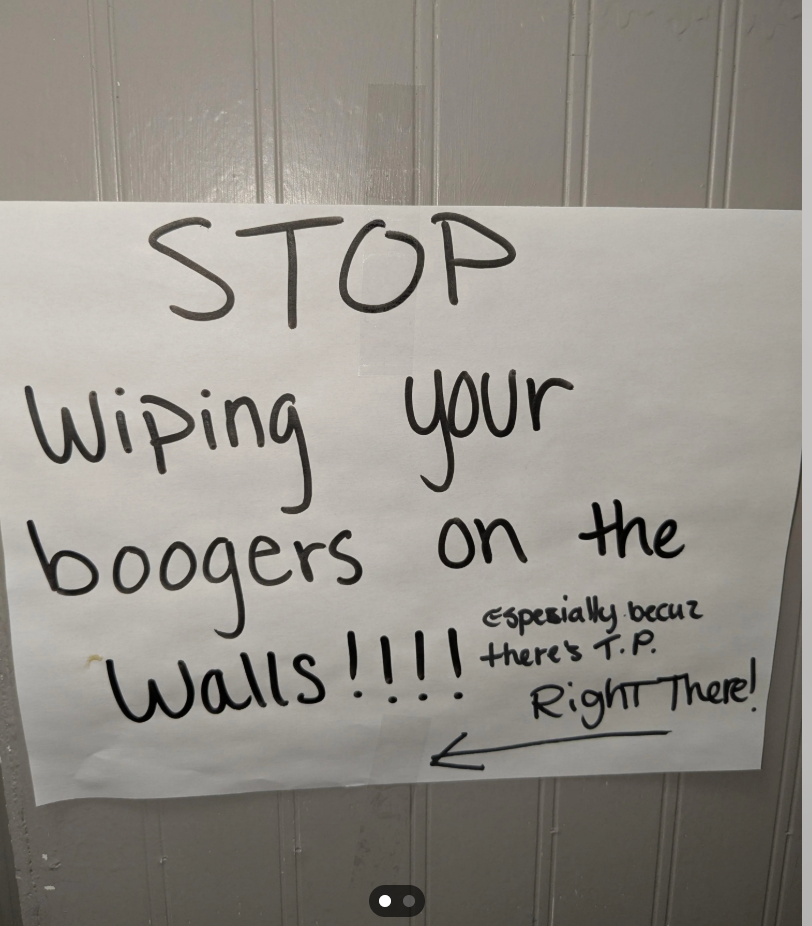 STOP
Wiping your
boogers on the
Walls!!!!
especially becuz
there's T.P.
Right There!